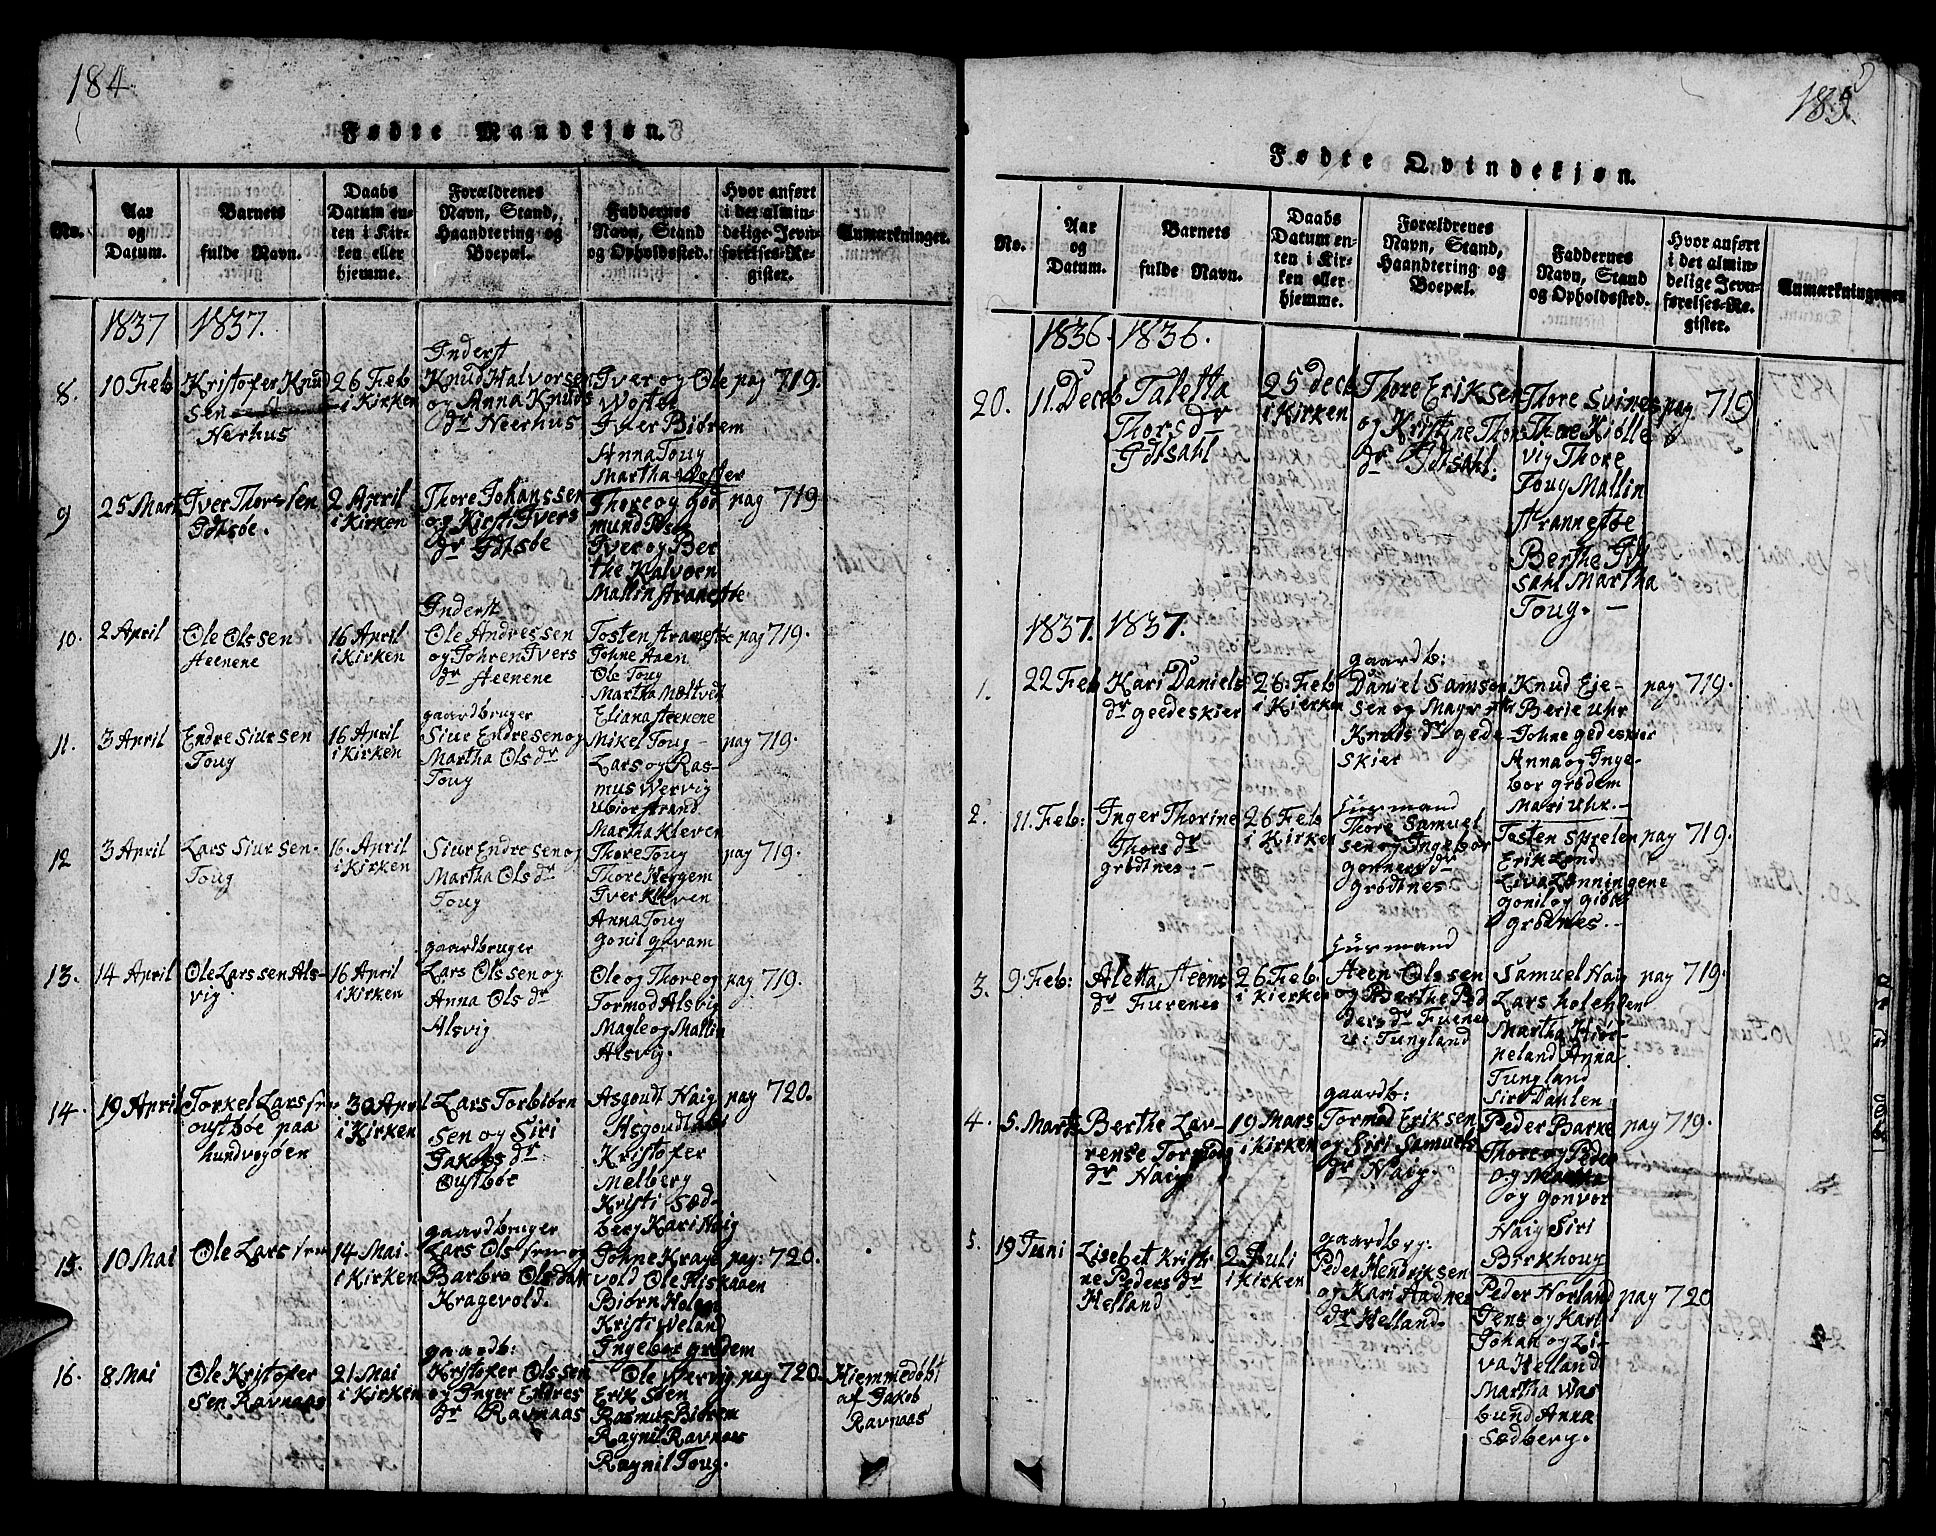 184.
Fødte Mandkjøn.
No.
Aar
og
Datum.
Barnets
fulde Navn.
Daabs
Datum en-
ten i Kir-
ken eller
hjemme.
Forældrenes
Navn, Stand,
Haandtering og
Boepæl.
Faddernes
Navn, Stand
og Opholdssted.
Hvor anført
i det almin-
delige Jevn-
førelses-Re-
gister.
Anmærkninger.
1837
1837.
8.
10 Feb
Kristofer Knud
sen
Nerhus
26 Feb
i Kirken
Inderst
Knud Halvorsen
og Anna Knuds
dr Neerhus
Iver og Ole
Woster
Iver Biørem
Anna Toug
Martha Wester
pag 719.
9
25 Mart
Iver Thorssen
Idtsøe.
2 April
i Kirken
Thore Johanssen
og Kirsti Ivers
dr Idtsøe
Thore og Gud
mund Idsøe
Iver og Ber
the Kalvøen
Mallin Stranetøe
pag 719
10.
2 April
Ole Olssen
Steenene
16 April
i Kirken
Inderst
Ole Andressen
og Johren Ivers
dr Steenene
Tosten Stranetøe
Johne Aaen
Ole Toug
Martha Mæltvedt
Eliana Steenene
pag 719.
11.
3 April
Endre Siursen
Toug
16 April
i Kirken
gaardbruger
Siur Endresen og
Martha Ols dr
Toug
Mikel Toug
Lars og Ras-
mus Wervig
Ubior Strand
Martha Kleven
pag 719.
12
3 April
Lars Siursen
Toug
16. April
i Kirken
Siur Endresen og
Martha Ols dr
Toug
Thore Toug
Thore Hergem
Iver Kleven
Anna Toug
Gonil qvam
pag 719.
13.
14 April
Ole Larssen Als-
vig.
16 April
i Kirken
gaardbruger
Lars Olssen og
Anna Ols dr
Alsvig
Ole og Thore og
Tormod Alsvig
Magle og Mallin
Alsvig.
pag 719.
14.
19 April
Torkel Larssen
oustbøe paa
hundvogøen
30 April
i Kirken
Lars Torbiørn
sen og Siri
Jakobs dr
Oustbøe
Asgoudt Haig
Asgoudt
Kristofer
Melberg
Kristi Sæd-
berg Kari Haig
pag 720.
15.
10 Mai
Ole Larssen
14 Mai
i Kirken
gaardbruger
Lars Olssen og
Barbro Olsdatr
Kragevold.
Johne Krage
vold Ole Riskaaen
Biørn Holgen
Kristi Weland
Ingebor grødem
pag: 720.
16.
8 Mai
Ole Kristofer
sen Ravnaas
21 Mai
i Kirken
gaardb:
Kristofer Olssen
og Inger Endres
dr Ravnaas
Ole Wervig
Erik Søen
Rasmus Biørem
Ragnil Ravnaas
Ragnil Toug.
pag 720.
Hiemmedøbt
af Jakob
Ravnaas
185.
Fødte Qvindekjøn.
No.
Aar
og
Datum.
Barnets
fulde Navn.
Daabs
Datum en-
ten i Kir-
ken eller
hjemme.
Forældrenes
Navn, Stand,
Haandtering og
Boepæl.
Faddernes
Navn, Stand
og Opholdssted.
Hvor anført
i det almin-
delige Jevn-
førelses-Re-
gister.
Anmærkninger.
1836
1836.
20.
11. Decb
Taletta
Thors dr
Idtsahl
25 Decb
i Kirken
Thore Eriksen
og Kristne Thors
dr Idtsahl.
Thore Svines
Thore Kiølle
vig Thore
Toug Mallin
Strannetøe
Berthe Idt
sahl Martha
Toug.
pag 719
1837.
1837.
1.
22 Feb
Kari Daniels
dr geedeskier
26 Feb
i Kierken
gaardb:
Daniel Samsen
sen og Magreta
Knuds dr gede-
skier
Knud Eie-
Berie Uhr
Johne gedeskier
Anna og Inge-
bor grødem
Mari Uhr.
pag. 719.
2.
11. Feb:
Inger Thorine
Thors dr
grødtnes
26 Feb
i Kirken
Huusmand
Thore Samuel
sen og Ingebor
gonners dr
grødtnes
Tosten Sørelen
Erik Lønd
Liva Lønningene
gonil og
grødtnes
pag 719.
3.
9. Feb:
Aletta Steens
dr Furenes
26 Feb.
i Kierken
Huusmand
Steen Olssen
og Berthe Ped
ders dr Fuenes
u: Tungland
Samuel Haig
Lars
Martha Hiør-
neland Anna
Tungland
Siri Dahlen
pag 719.
4.
5. Marts
Berthe Lav-
rense Tormods
dr Haig.
19 Mars
i Kirken
gaardb:
Tormod Eriksen
og Siri Samuels
dr Haig.
Peder Barke
Thore og Peder
og Martha
og gonvor
Haig Siri
Birkhoug
pag 719.
5.
19 Juni
Lisebet Kristi
ne Peders dr
Helland
2 Juli
i Kirken
gaardbrg:
Peder Hendriksen
og Kari Aadnes
dr Helland.
Peder Norland
Jens og Karl
Johan og Li-
va Helland
Martha Was
bund Anna
Sædberg.
pag 720